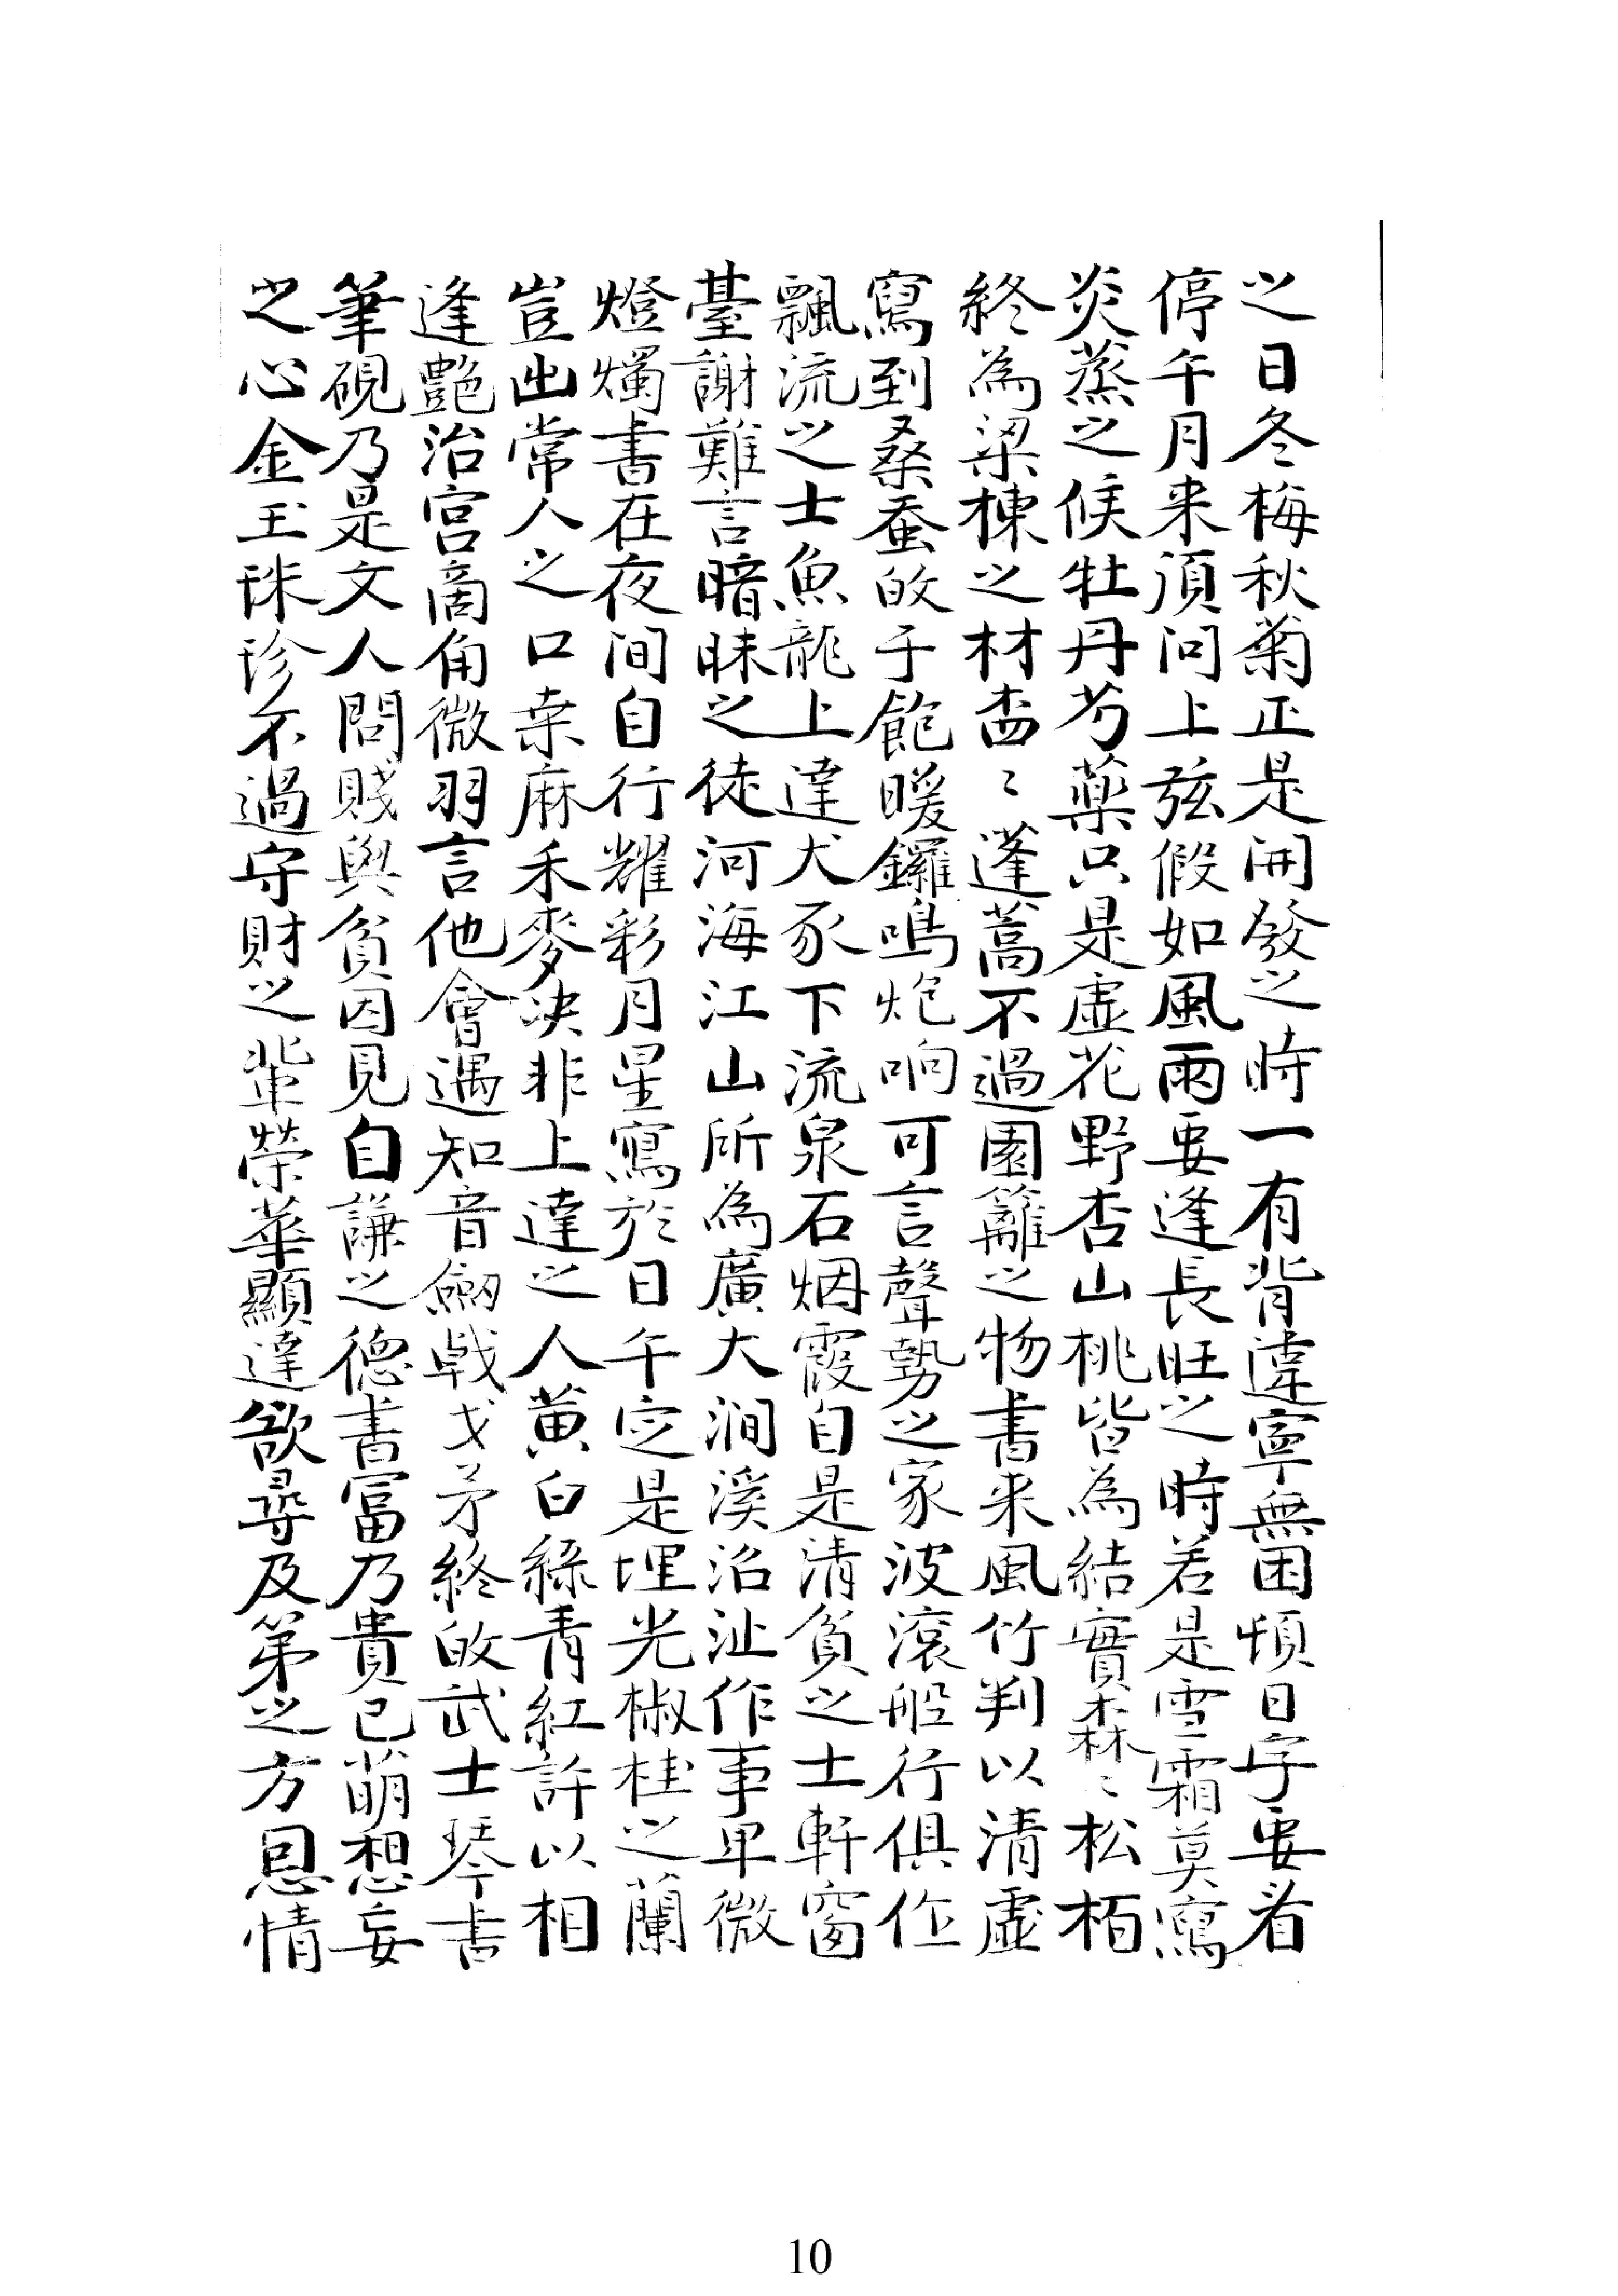 之日冬梅秋菊正是開發之時一有背違寧無困頓日字要看
停午月来須问上弦假如風雨要逢長旺之時若是雪霜莫寫
炎蒸之候牡丹芍藥只是虛花野杏山桃皆為結實森〻松栢
終為梁棟之材〻蓬蒿不過園籬之物書来風竹判以清虛
寫到桑蚕的于飽暖鑼鳴炮响可言聲勢之家波滾船行俱作
飄流之士魚龍上達犬豕下流泉石烟霞自是清貧之士軒窗
臺謝難言暗昧之徒河海江山所為廣大澗溪沼沚作事卑微
燈燭書在夜间自行耀彩月星寫於日午定是埋光椒桂之蘭
豈出常人之口桒麻禾麥决非上達之人黄白綠青紅許以相
逢艷治宫啇角微羽言他會遇知音劔戟戈矛終的武士琴書
筆硯乃是文人問賤與貧因見自謙之德書冨乃貴已萌想妄
之心金玉珠珍不過守財之輩榮華顯達欲尋及第之方恩情
10